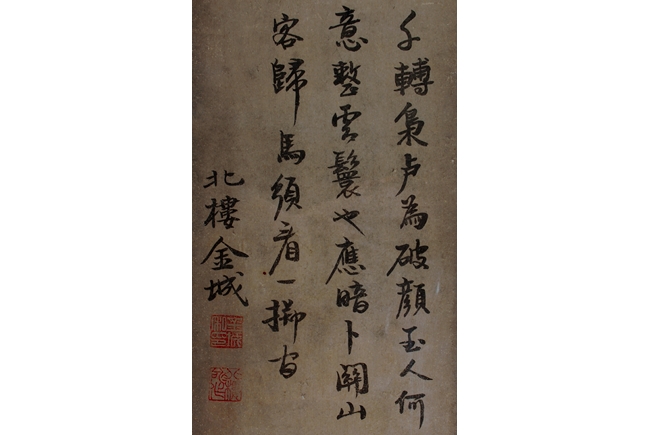 千轉梟卢為破顏玉人何
意整雲鬟也應暗卜關山
客歸馬須看一擲間
北樓金城